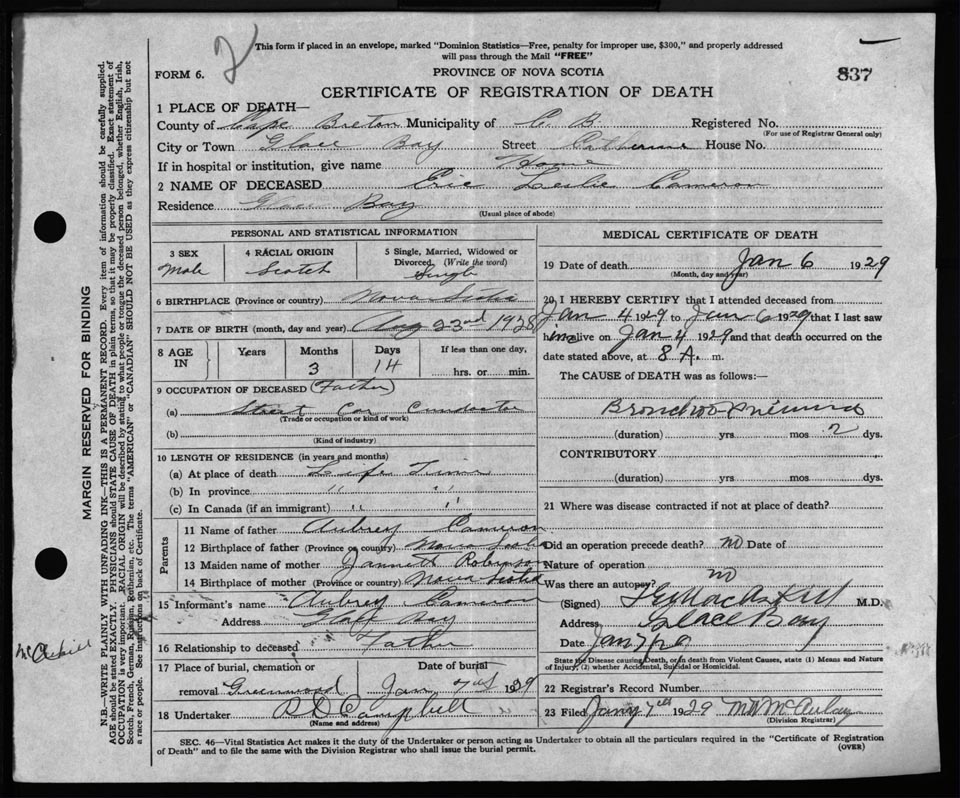 2
This form if placed in an envelope, marked "Dominion Statistics—Free, penalty for improper use, $300," and properly addressed
will pass through the Mail "FREE"
FORM 6.
PROVINCE OF NOVA SCOTIA
837
CERTIFICATE OF REGISTRATION OF DEATH
1 PLACE OF DEATH—
County of Cape Breton Municipality of C. B. Registered No.
(For use of Registrar General only)
City or Town Glace Bay Street Catherine House No.
If in hospital or institution, give name Home
2 NAME OF DECEASED Eric Leslie Cameron
Residence Glace Bay
(Usual place of abode)
PERSONAL AND STATISTICAL INFORMATION
3 SEX
Male
4 RACIAL ORIGIN
Scotch
5 Single, Married, Widowed or
Divorced, (Write the word)
Single
6 BIRTHPLACE (Province or country) Nova Scotia
7 DATE OF BIRTH (month, day and year) Aug 23rd 1928
8 AGE IN
Years
Months
3
Days
14
If less than one day,
hrs. or min.
9 OCCUPATION OF DECEASED (Father)
(a) Street Car Conductor
(Trade or occupation or kind of work)
(b)
(Kind of industry)
10 LENGTH OF RESIDENCE (in years and months)
(a) At place of death Life Time
(b) In province " "
(c) In Canada (if an immigrant) " "
Parents
11 Name of father Aubrey Cameron
12 Birthplace of father (Province or country) Nova Scotia
13 Maiden name of mother Jannett Robinson
14 Birthplace of mother (Province or country) Nova Scotia
15 Informant's name Aubrey Cameron
Address Bay
16 Relationship to deceased Father
17 Place of burial, cremation or Date of burial
removal Greenwood Jan 7th 1929
18 Undertaker Campbell
(Name and address)
MEDICAL CERTIFICATE OF DEATH
19 Date of death Jan 6 1929
(Month, day and year)
20 I HEREBY CERTIFY that I attended deceased from
Jan 4 1929 to Jan 6 1929 that I last saw
him alive on Jan 4 1929 and that death occurred on the
date stated above, at 8 A. m.
The CAUSE of DEATH was as follows:—
Broncho-Pneumonia
(duration) yrs mos 2 dys.
CONTRIBUTORY
(duration) yrs mos dys.
21 Where was disease contracted if not at place of death?
Did an operation precede death? no Date of
Nature of operation
Was there an autopsy? no
(Signed) MacAskill M.D.
Address Glace Bay
Date Jan 7
State the Disease causing Death, or in death from Violent Causes, state (1) Means and Nature
of Injury, (2) whether Accidental, Suicidal or Homicidal.
22 Registrar's Record Number
23 Filed Jany 7th 1929 McAulay
(Division Registrar)
SEC. 46—Vital Statistics Act makes it the duty of the Undertaker or person acting as Undertaker to obtain all the particulars required in the "Certificate of Registration
of Death" and to file the same with the Division Registrar who shall issue the burial permit.
(OVER)
MARGIN RESERVED FOR BINDING
N.B.—WRITE PLAINLY WITH UNFADING INK—THIS IS A PERMANENT RECORD. Every item of information should be carefully supplied.
AGE should be stated EXACTLY. PHYSICIANS should STATE CAUSE OF DEATH in plain terms, so that it may be properly classified. Exact statement of
OCCUPATION is very important. RACIAL ORIGIN will be described by stating to what people or tongue the deceased person belonged, whether English, Irish,
Scotch, French, German, Russian, Ruthenian, etc. The terms "AMERICAN" or "CANADIAN" SHOULD NOT BE USED as they express citizenship but not
a race or people. See instructions on back of Certificate.